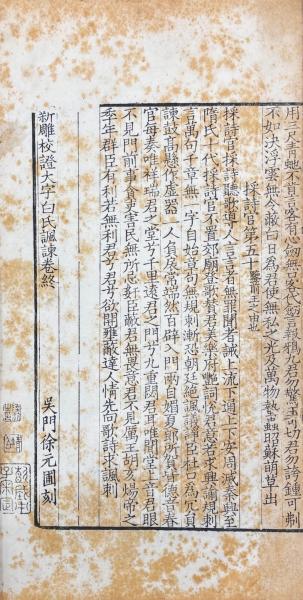 用三尺青虵不肯言客有心劍無口客代劍言報鵶九君勿矜玉可切君勿誇鍾可刜
不如決浮雲無令蔽白日為君使無私之光及萬物蟄蟲昭蘇萌草出
採詩官第五十 鑒前王亂亡之由也
採詩官採詩聽歌導人言言者無罪聞者誡上流下通上下安周滅秦興至
隋氏十代採詩官不置郊廟登歌賛君美樂府艷詞悅君意若求興諭規刺
言萬句千章無一字自始章句無規刺漸恐朝廷絕諷議諍臣杜口為冗員
諫鼓高縣作虛器一人負扆常端然百辟入門兩自媚夕郎所賀皆德音春
官每奏唯祥瑞君之堂兮千里遠君之門兮九重閟君耳唯聞堂上言君眼
不見門前事貪吏害民無所忌奸臣蔽君無畏意君不見厲王胡亥煬帝之
季年群臣有利若無利君兮君兮欲開壅蔽達人情先向歌詩求諷刺
新雕校證大字白氏諷諫卷終
吳門徐元圃刻